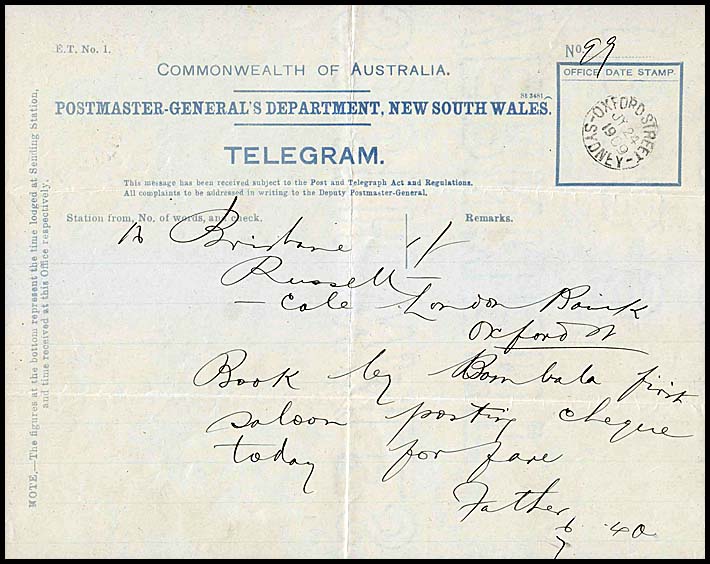 E.T. No. 1.
No. 99
COMMONWEALTH OF AUSTRALIA.
OFFICE DATE STAMP.
St 3481
POSTMASTER-GENERAL'S DEPARTMENT, NEW SOUTH WALES.
OXFORD STREET - SYDNEY
JY 24
1909
TELEGRAM.
This message has been received subject to the Post and Telegraph Act and Regulations.
All complaints to be addressed in writing to the Deputy Postmaster-General.
Station from, No. of words, and check.
Remarks.
Brisbane 1/
Russell
- London Bank
Oxford St
Book by Bombala first
saloon posting cheque
today for fare
Father
40
NOTE.—The figures at the bottom represent the time lodged at Sending Station,
and time received at this Office respectively.